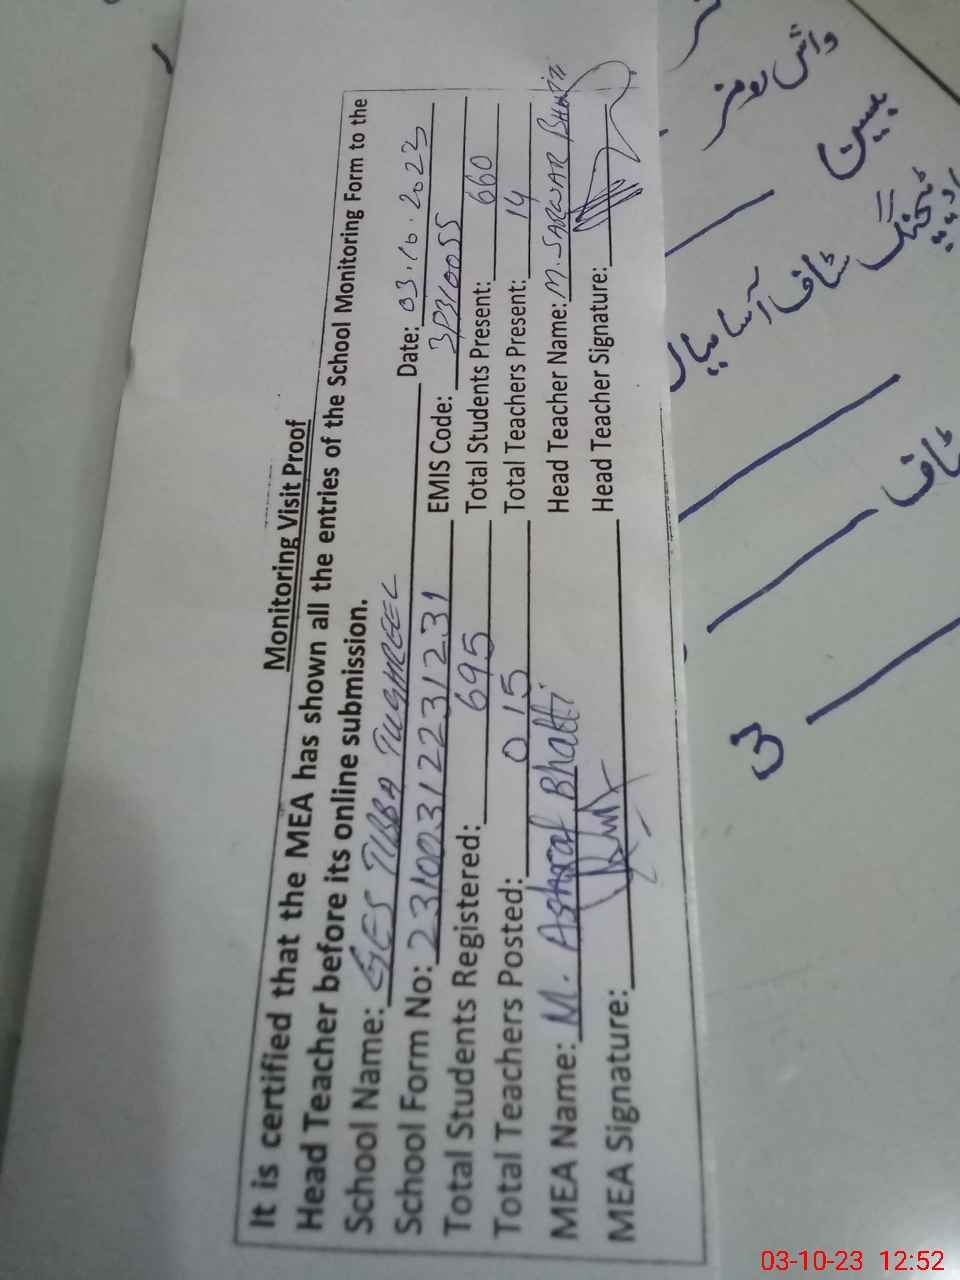 Monitoring Visit Proof
It is certified that the MEA has shown all the entries of the School Monitoring Form to the
Head Teacher before its online submission.
School Name: GES TIBBA TUGHREEL Date: 03.10.2023
School Form No: 2310031223 1231 EMIS Code:
Total Students Registered: 695 Total Students Present: 660
Total Teachers Posted: 015 Total Teachers Present: 14
MEA Name: M. Ashraf Bhatti Head Teacher Name: M. SARWAR BHATTI
MEA Signature: Head Teacher Signature:
واش رومز
ٹیچنگ سٹاف آسامیاں
سٹاف
3
03-10-23 12:52